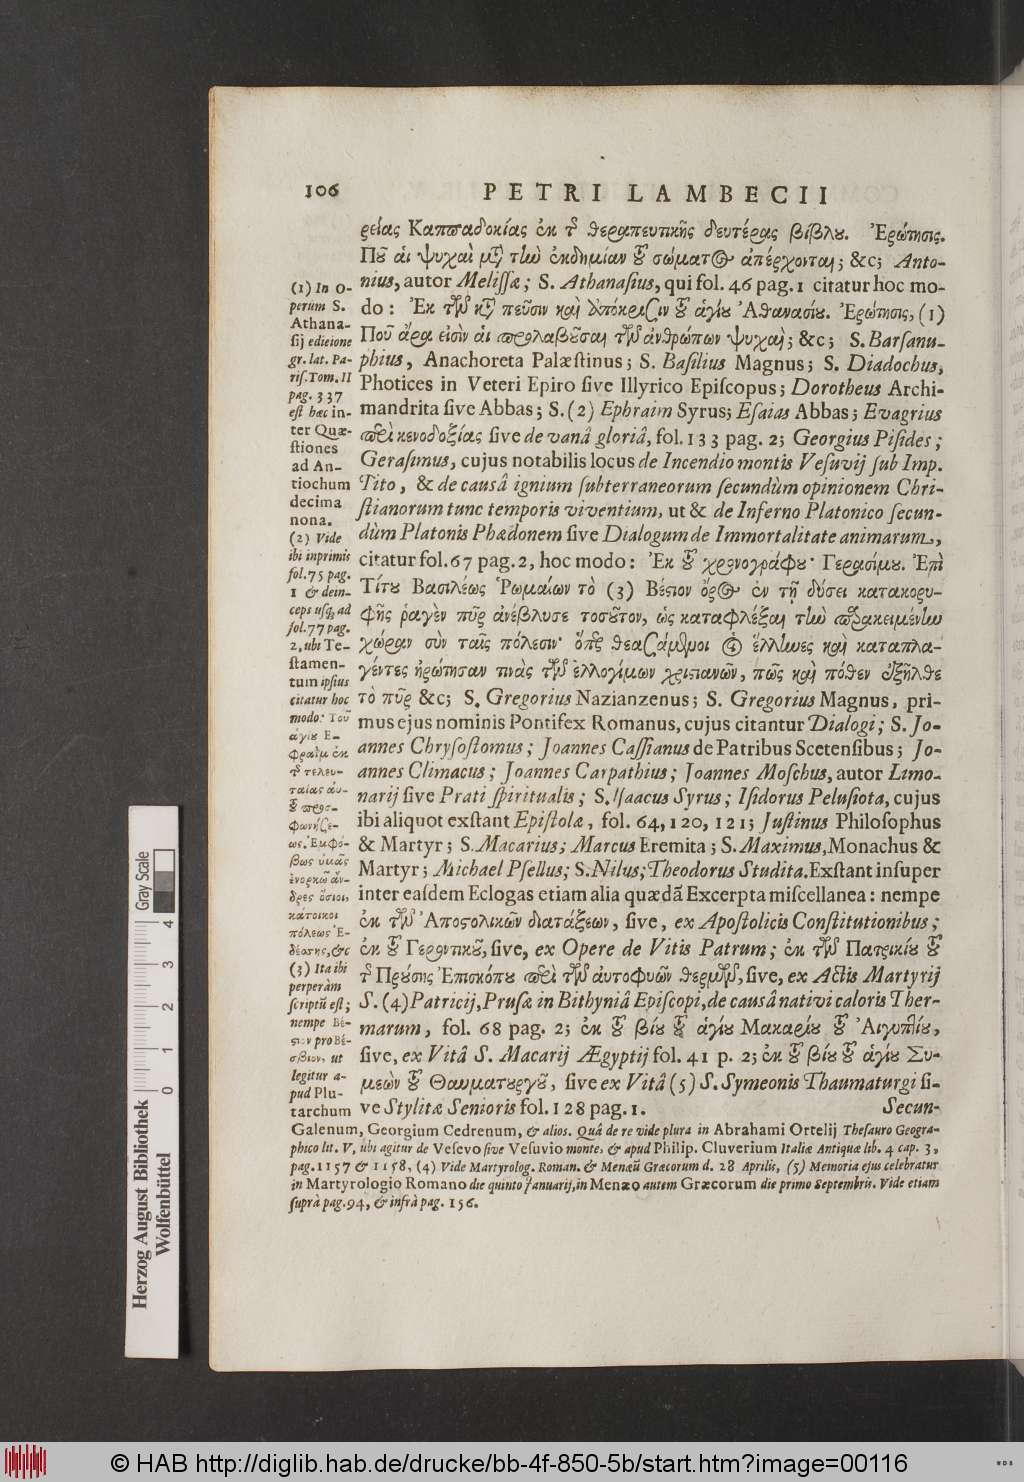 106 PETRI LAMBECII
ρείας Καππαδοκίας ἐκ τῆς θεραπευτικῆς δευτέρας βίβλου. Ἐρώτησις.
Ποῦ ἁι ψυχαὶ μετὰ τὴν ἐκδημίαν τοῦ σώματος ἀπέρχονται; &c; Anto-
nius, autor Melissæ; S. Athanasius, qui fol. 46 pag. 1 citatur hoc mo-
do: Ἐκ τῶν κατὰ πεῦσιν καὶ ἀπόκρισιν τοῦ ἁγίου Ἀθανασίου. Ἐρώτησις, (1)
Ποῦ ἄρα εἰσὶν ἁι προλαβοῦσαι τῶν ἀνθρώπων ψυχαὶ; &c; S. Barsanu-
phius, Anachoreta Palæstinus; S. Basilius Magnus; S. Diadochus,
Photices in Veteri Epiro sive Illyrico Episcopus; Dorotheus Archi-
mandrita sive Abbas; S. (2) Ephraim Syrus; Esaias Abbas; Evagrius
περὶ κενοδοξίας sive de vanâ gloriâ, fol. 133 pag. 2; Georgius Pisides;
Gerasimus, cujus notabilis locus de Incendio montis Vesuvij sub Imp.
Tito, & de causâ ignium subterraneorum secundùm opinionem Chri-
stianorum tunc temporis viventium, ut & de Inferno Platonico secun-
dùm Platonis Phædonem sive Dialogum de Immortalitate animarum,
citatur fol. 67 pag. 2, hoc modo: Ἐκ τοῦ χρονογράφου· Γερασίμου. Ἐπὶ
Τίτου Βασιλέως Ῥωμαίων τὸ (3) Βέσιον ὄρος ἐν τῇ δύσει κατακορυ-
φῆς ῥαγὲν πῦρ ἀνέβλυσε τοσοῦτον, ὡς καταφλέξαι τὴν παρακειμένην
χώραν σὺν ταῖς πόλεσιν· ὅπερ θεασάμενοι οἱ ἕλληνες καὶ καταπλα-
γέντες ἠρώτησαν τινὰς τῶν ἐλλογίμων χριστιανῶν, πῶς καὶ πόθεν ἐξῆλθε
τὸ πῦρ &c; S. Gregorius Nazianzenus; S. Gregorius Magnus, pri-
mus ejus nominis Pontifex Romanus, cujus citantur Dialogi; S. Jo-
annes Chrysostomus; Joannes Cassianus de Patribus Scetensibus; Jo-
annes Climacus; Joannes Carpathius; Joannes Moschus, autor Limo-
narij sive Prati spiritualis; S. Isaacus Syrus; Isidorus Pelusiota, cujus
ibi aliquot exstant Epistolæ, fol. 64, 120, 121; Justinus Philosophus
& Martyr; S. Macarius; Marcus Eremita; S. Maximus, Monachus &
Martyr; Michael Psellus; S. Nilus; Theodorus Studita. Exstant insuper
inter easdem Eclogas etiam alia quædã Excerpta miscellanea: nempe
ἐκ τῶν Ἀποστολικῶν διατάξεων, sive, ex Apostolicis Constitutionibus;
ἐκ τοῦ Γεροντικοῦ, sive, ex Opere de Vitis Patrum; ἐκ τῶν Πατρικίου τοῦ
τῆς Προύσης Ἐπισκόπου περὶ τῶν ἀυτοφυῶν θερμῶν, sive, ex Actis Martyrij
S. (4) Patricij, Prusæ in Bithyniâ Episcopi, de causâ nativi caloris Ther-
marum, fol. 68 pag. 2; ἐκ τοῦ βίου τοῦ ἁγίου Μακαρίου τοῦ Ἀιγυπτίου,
sive, ex Vitâ S. Macarij Ægyptij fol. 41 p. 2; ἐκ τοῦ βίου τοῦ ἁγίου Συ-
μεὼν τοῦ Θαυματουργοῦ, sive ex Vitâ (5) S. Symeonis Thaumaturgi si-
ve Stylitæ Senioris fol. 128 pag. 1. Secun-
(1) In O-
perum S.
Athana-
sij editione
gr. lat. Pa-
ris. Tom. II
pag. 337
est hæc in-
ter Quæ-
stiones
ad An-
tiochum
decima
nona.
(2) Vide
ibi inprimis
fol. 75 pag.
1 & dein-
ceps usq; ad
fol. 77 pag.
2, ubi Te-
stamen-
tum ipsius
citatur hoc
modo: Τοῦ
ἁγίου Ἐ-
φραὶμ ἐκ
τῆς τελευ-
ταίας ἀυ-
τοῦ προσ-
φωνήσε-
ως. Ἐμφό-
βως ὑμᾶς
ἐνορκῶ ἄν-
δρες ὅσιοι,
κάτοικοι
πόλεως Ἐ-
δέσης, &c
(3) Ita ibi
perperàm
scriptũ est;
nempe Βέ-
σιον pro Βέ-
σβιον, ut
legitur a-
pud Plu-
tarchum
Galenum, Georgium Cedrenum, & alios. Quâ de re vide plura in Abrahami Ortelij Thesauro Geogra-
phico lit. V, ubi agitur de Vesevo sive Vesuvio monte, & apud Philip. Cluverium Italiæ Antiquæ lib. 4 cap. 3,
pag. 1157 & 1158, (4) Vide Martyrolog. Roman. & Menæũ Græcorum d. 28 Aprilis, (5) Memoria ejus celebratur
in Martyrologio Romano die quinto Januarij, in Menæo autem Græcorum die primo Septembris. Vide etiam
suprà pag. 94, & infrà pag. 156.
Gray Scale
0 1 2 3 4
Herzog August Bibliothek
Wolfenbüttel
© HAB http://diglib.hab.de/drucke/bb-4f-850-5b/start.htm?image=00116